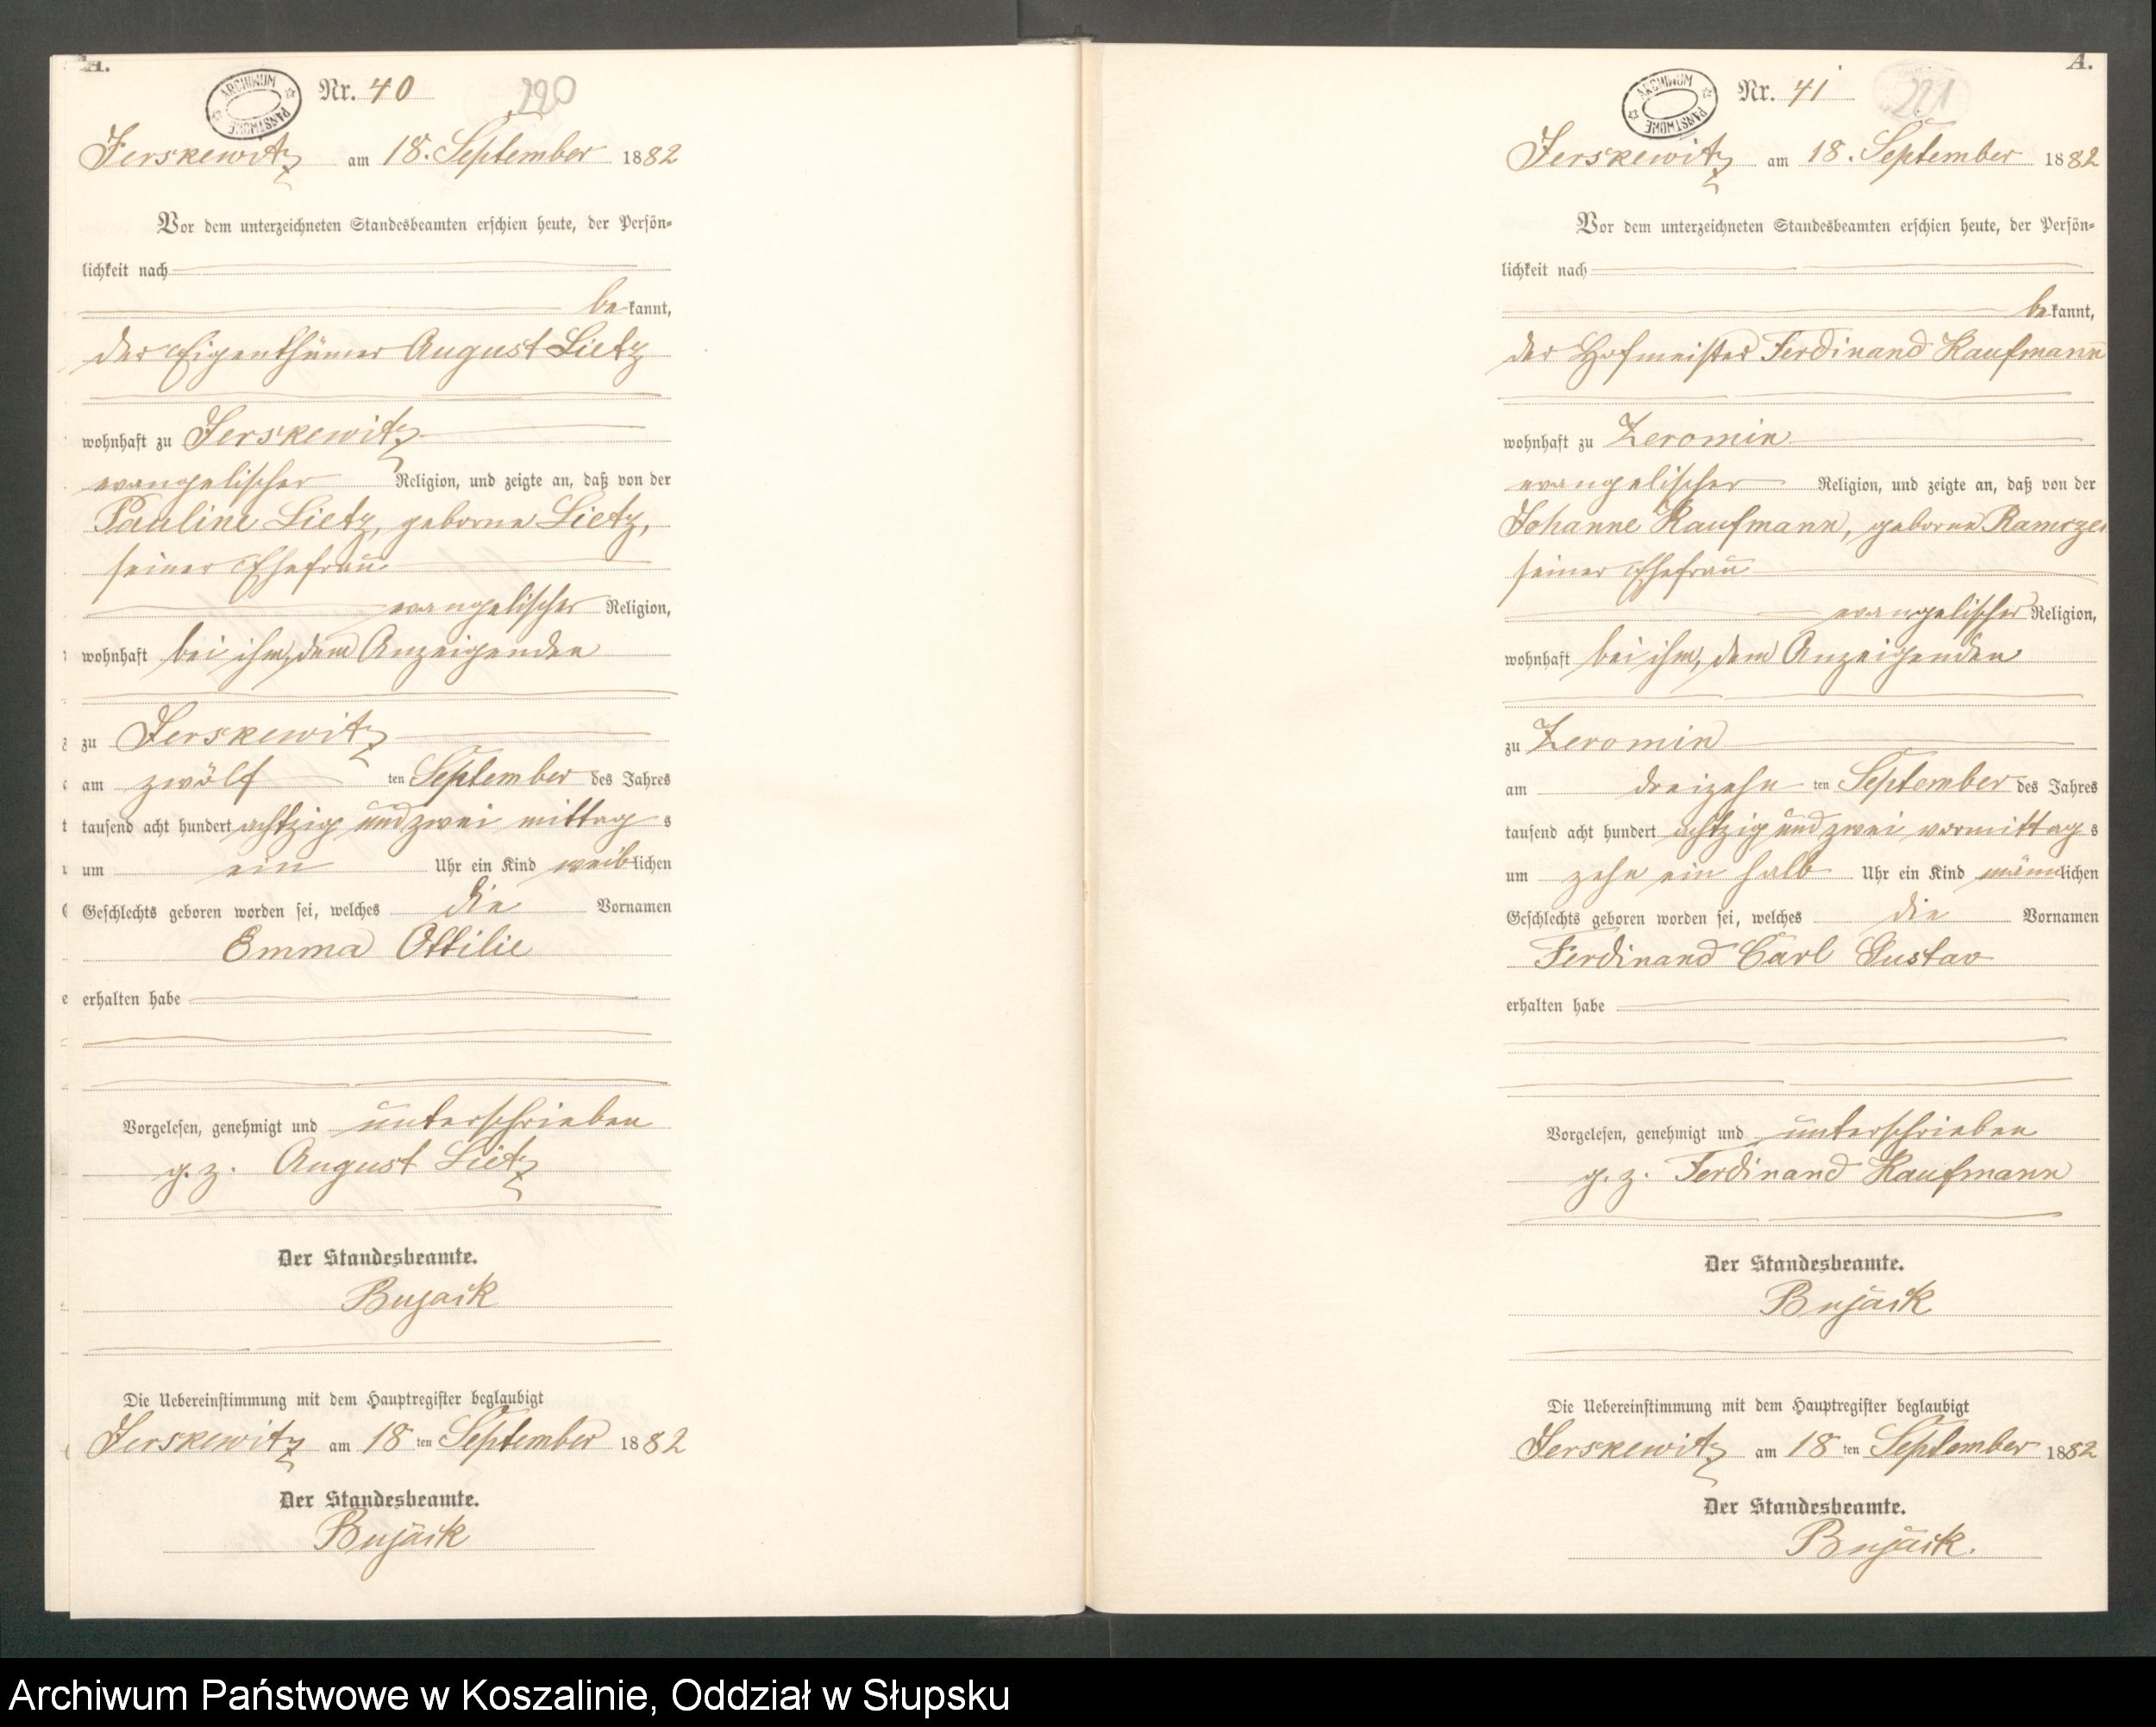 A.
ARCHIWUM PAŃSTWOWE
Nr. 40
220
Jerskewitz am 18. September 1882
Vor dem unterzeichneten Standesbeamten erschien heute, der Persön=
lichkeit nach
be kannt,
der Eigenthümer August Lietz
wohnhaft zu Jerskewitz
evangelischer Religion, und zeigte an, daß von der
Pauline Lietz, geborne Lietz,
seiner Ehefrau
evangelischer Religion,
wohnhaft bei ihm, dem Anzeigenden
zu Jerskewitz
am zwölf ten September des Jahres
tausend acht hundert achtzig und zwei mittag s
um ein Uhr ein Kind weib lichen
Geschlechts geboren worden sei, welches die Vornamen
Emma Ottilie
erhalten habe
Vorgelesen, genehmigt und unterschrieben
g. z. August Lietz
Der Standesbeamte.
Bujack
Die Uebereinstimmung mit dem Hauptregister beglaubigt
Jerskewitz am 18 ten September 1882
Der Standesbeamte.
Bujack
A.
ARCHIWUM PAŃSTWOWE
Nr. 41
221
Jerskewitz am 18. September 1882
Vor dem unterzeichneten Standesbeamten erschien heute, der Persön=
lichkeit nach
be kannt,
der Hofmeister Ferdinand Kaufmann
wohnhaft zu Zeromin
evangelischer Religion, und zeigte an, daß von der
Johanne Kaufmann, geborne
seiner Ehefrau
evangelischer Religion,
wohnhaft bei ihm, dem Anzeigenden
zu Zeromin
am dreizehn ten September des Jahres
tausend acht hundert achtzig und zwei vormittag s
um zehn ein halb Uhr ein Kind männ lichen
Geschlechts geboren worden sei, welches die Vornamen
Ferdinand Carl Gustav
erhalten habe
Vorgelesen, genehmigt und unterschrieben
g. z. Ferdinand Kaufmann
Der Standesbeamte.
Bujack
Die Uebereinstimmung mit dem Hauptregister beglaubigt
Jerskewitz am 18 ten September 1882
Der Standesbeamte.
Bujack.
Archiwum Państwowe w Koszalinie, Oddział w Słupsku